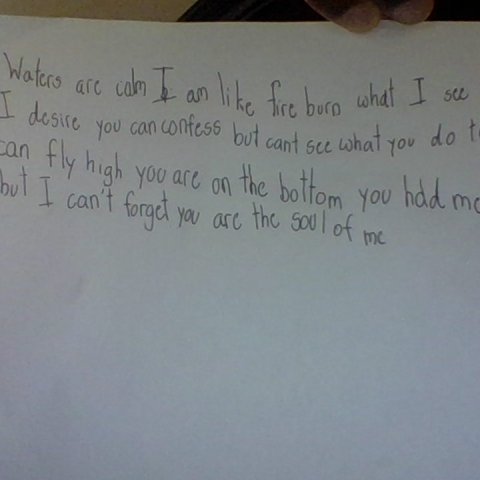 Waters are calm I am like fire burn what I see
I desire you can confess but cant see what you do
can fly high you are on the bottom you had me
but I can't forget you are the soul of me